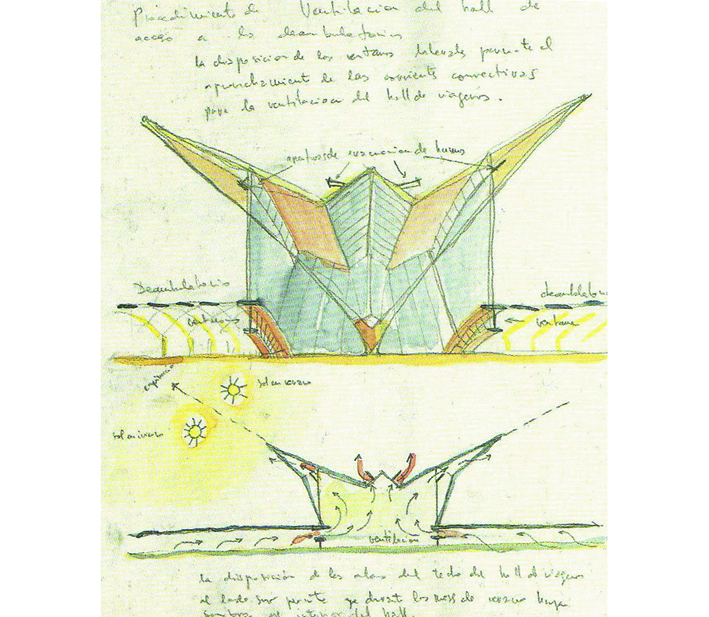 Procedimiento de Ventilacion del hall de
acceso a los deambulatorios
la disposicion de las ventanas laterales permite el
aprovechamiento de las corrientes convectivas
para la ventilacion del hall de viageros.
aperturas de evacuacion de humos
Deambulatorio
deambulatorio
ventana
ventana
sol en verano
sol en invierno
ventilacion
la disposición de las alas del techo del hall de viageros
al lado sur permite que durant los meses de verano haya
sombra en interior del hall.